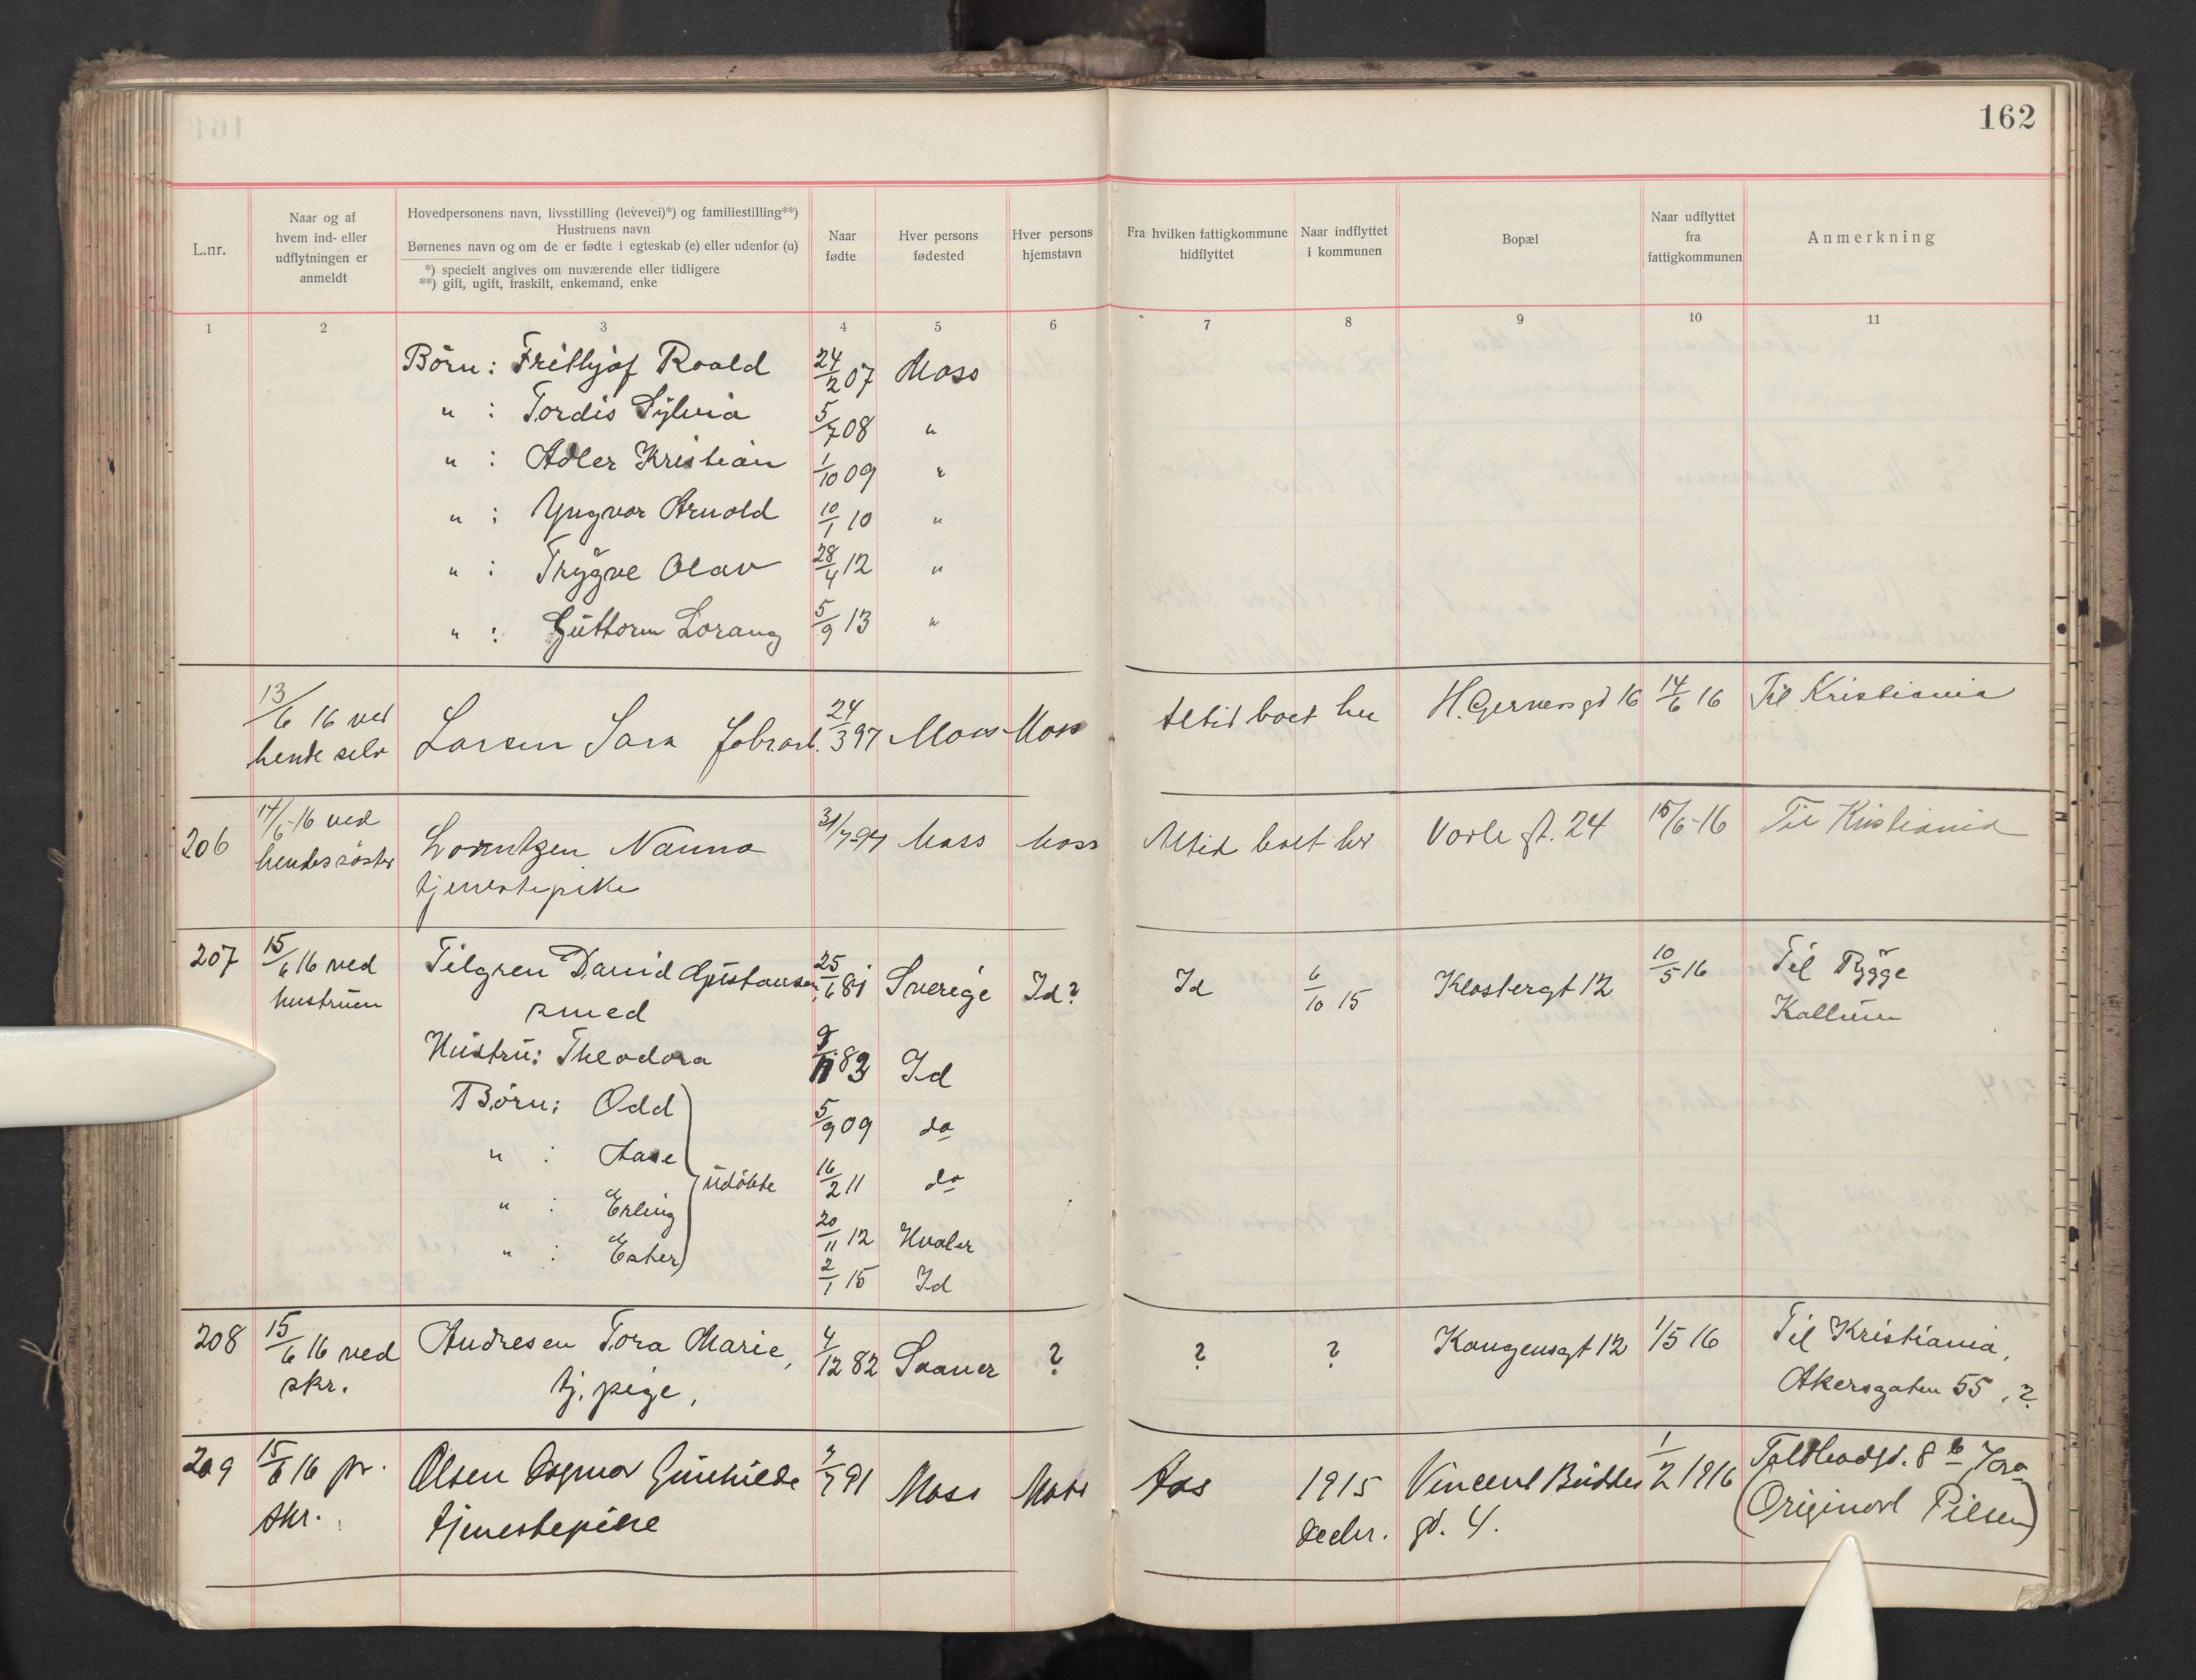 162
L.nr.
Naar og af
hvem ind- eller
udflytningen er
anmeldt
Hovedpersonens navn, livsstilling (levevei)*) og familiestilling**)
Hustruens navn
Børnenes navn og om de er fødte i egteskab (e) eller udenfor (u)
*) specielt angives om nuværende eller tidligere
**) gift, ugift, fraskilt, enkemand, enke
Naar
fødte
Hver persons
fødested
Hver persons
hjemstavn
Fra hvilken fattigkommune
hidflyttet
Naar indflyttet
i kommunen
Bopæl
Naar udflyttet
fra
fattigkommunen
Anmerkning
1 2 3 4 5 6 7 8 9 10 11
Børn: Frithjof Roald 24/2 07 Moss
" : Tordis Sylvia 5/7 08 "
" : Adler Kristian 1/10 09 "
" : Yngvar Arnold 10/1 10 "
" : Trygve Olav 28/4 12 "
" : Guttorm Lorang 5/9 13 "
13/6 16 ved
hende selv
Larsen Sara fabrarb. 24/3 97 Moss Moss Altid boet her H. Gernersgt 16 14/6 16 Til Kristiania
206
14/6-16 ved
hendes søster
Lorentzen Nanna
tjenestepike
31/7-97 Moss Moss Altid boet her Vorle gt. 24 15/6-16 Til Kristiania
207
15/6 16 ved
hustruen
Tilgren David Gustavsen
smed
25/6 81 Sverige Id? Id 6/10 15 Klostergt 12 10/5 16
Til Rygge
Kallum
Hustru: Theodora 83 Id
Børn: Odd 5/9 09 do
" : Aase 16/2 11 do
udøbte
" : Erling 20/11 12 Hvaler
" : Ester 2/1 15 Id
208
15/6 16 ved
skr.
Andresen Tora Marie,
tj. pige,
4/12 82 Saaner ? ? ? Kongensgt 12 1/5 16
Til Kristiania,
Akersgaten 55, ?
209
15/6 16 pr.
skr.
Olsen Dagmar Gunhilde
tjenestepike
2/7 91 Moss Moss Aas
1915
decbr.
Vincent Buddes
gt. 4.
1/2 1916
Toldbodgt. 8 b
(Original Pilsen)